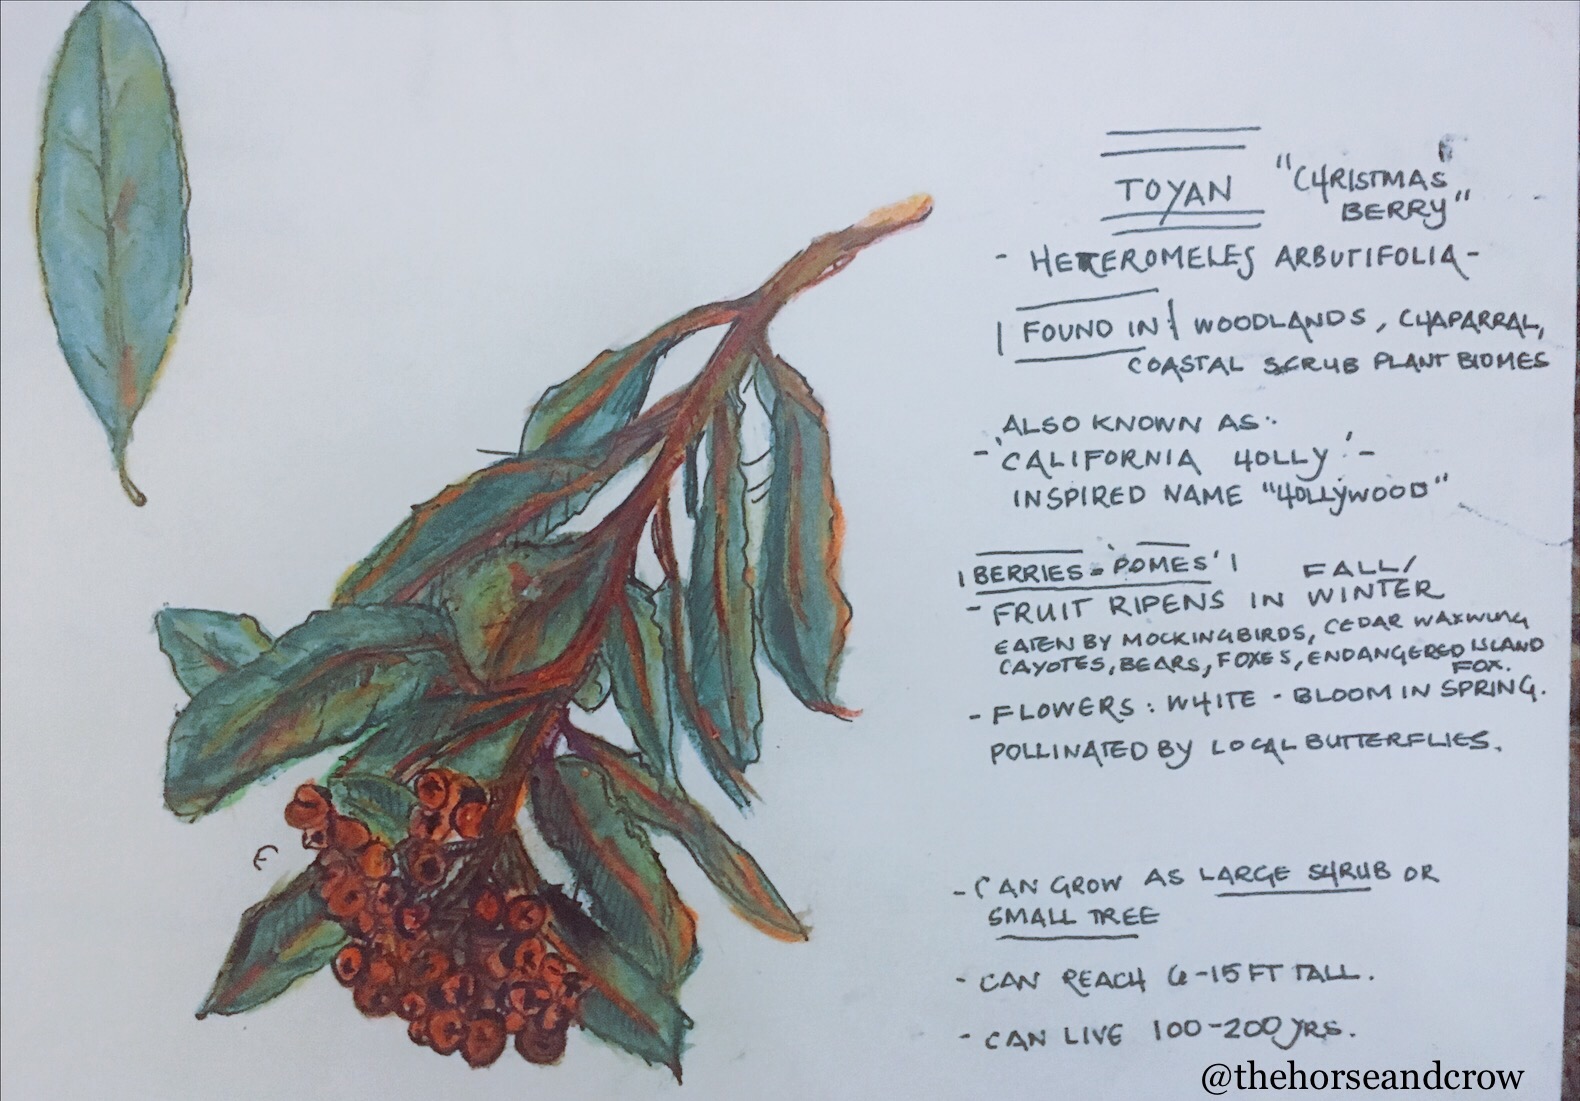 TOYAN "CHRISTMAS
BERRY"
- HETEROMELES ARBUTIFOLIA -
| FOUND IN: | WOODLANDS, CHAPARRAL,
COASTAL SCRUB PLANT BIOMES
ALSO KNOWN AS:
- 'CALIFORNIA HOLLY' -
INSPIRED NAME "HOLLYWOOD"
| BERRIES - 'POMES' |
- FRUIT RIPENS IN FALL/
WINTER
EATEN BY MOCKINGBIRDS, CEDAR WAXWING
CAYOTES, BEARS, FOXES, ENDANGERED ISLAND
FOX.
- FLOWERS: WHITE - BLOOM IN SPRING.
POLLINATED BY LOCAL BUTTERFLIES.
- CAN GROW AS LARGE SHRUB OR
SMALL TREE
- CAN REACH 6-15 FT TALL.
- CAN LIVE 100-200 YRS.
@thehorseandcrow